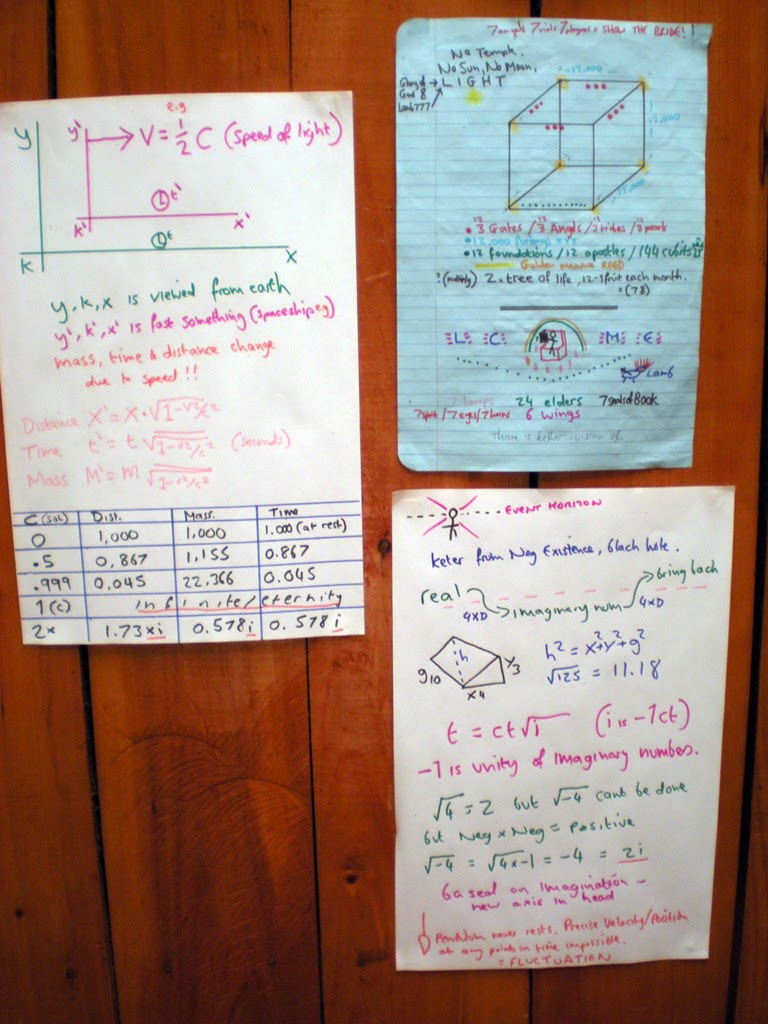 e.g
y y' V = 1/2 C (speed of light)
t'
k' x'
t
k x
y, k, x is viewed from earth
y', k', x' is fast something (spaceship eg)
mass, time & distance change
due to speed!!
Distance X' = X·√1-v²/c²
Time t' = t √1-v²/c² (seconds)
Mass M' = M √1-v²/c²
C (sol) Dist. Mass. Time
0 1,000 1,000 1.000 (at rest)
.5 0,867 1,155 0.867
.999 0,045 22,366 0.045
1 (c) infinite/eternity
2x 1.73xi 0.578i 0.578i
7 angels 7 vials 7 plagues = SHOW THE BRIDE!!
No Temple.
No Sun, No Moon,
Glory of God & Lamb 777 → LIGHT
12,000
12,000
• 3 Gates / 3 Angls / 12 tribes / 3 pearl
• 12,000 furlongs XYZ
• 12 foundations / 12 apostles / 144 cubits
Golden REED
? (multiply) 2 x tree of life, 12-1 fruit each month.
= (78)
L C M E
Lamb
7 lamps 24 elders 7 seals of Book
7 spirit / 7 eyes / 7 horns 6 wings
Throne is kether - vision of.
EVENT HORIZON
Keter from Neg Existence, black hole.
real imaginary num bring back
4xD 4xD
h
g10 x4 y3
h² = x²+y²+g²
√125 = 11.18
t = ct√i (i is -1ct)
-1 is unity of Imaginary numbers.
√4 = 2 but √-4 cant be done
but Neg x Neg = positive
√-4 = √4x-1 = -4 = 2i
based on Imagination -
new axis in head
Pendulum never rests. Precise Velocity/Position
at any point in time impossible.
= FLUCTUATION